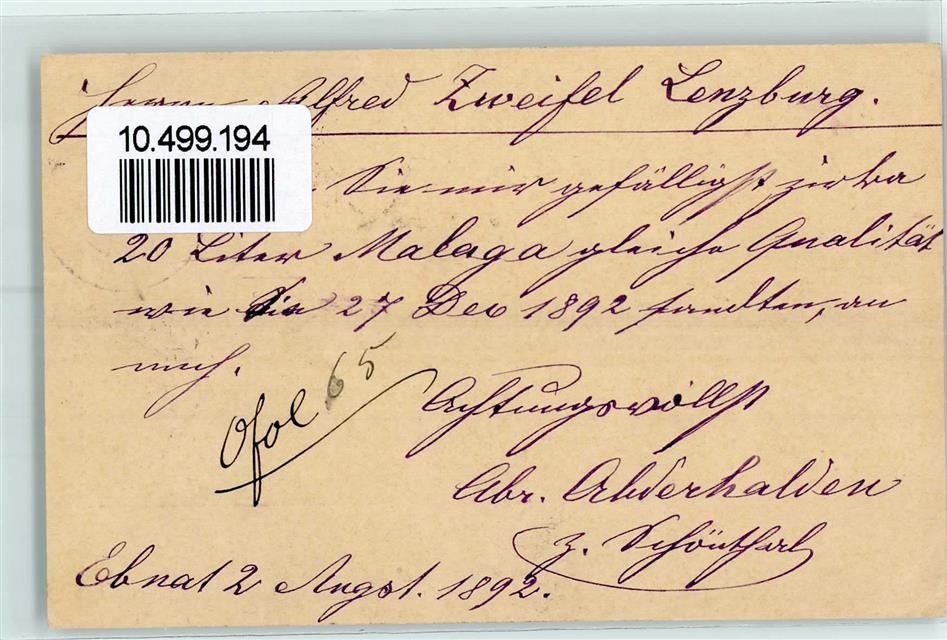 Herrn Alfred Zweifel Lenzburg.
10.499.194
Sie mir gefälligst zirka
20 Liter Malaga gleiche Qualität
wie Sie 27 Dec 1892 sandten, an
mich.
65
Achtungsvollst
Abr. Abderhalden
z. Schönthal
Ebnat 2 Augst. 1892.